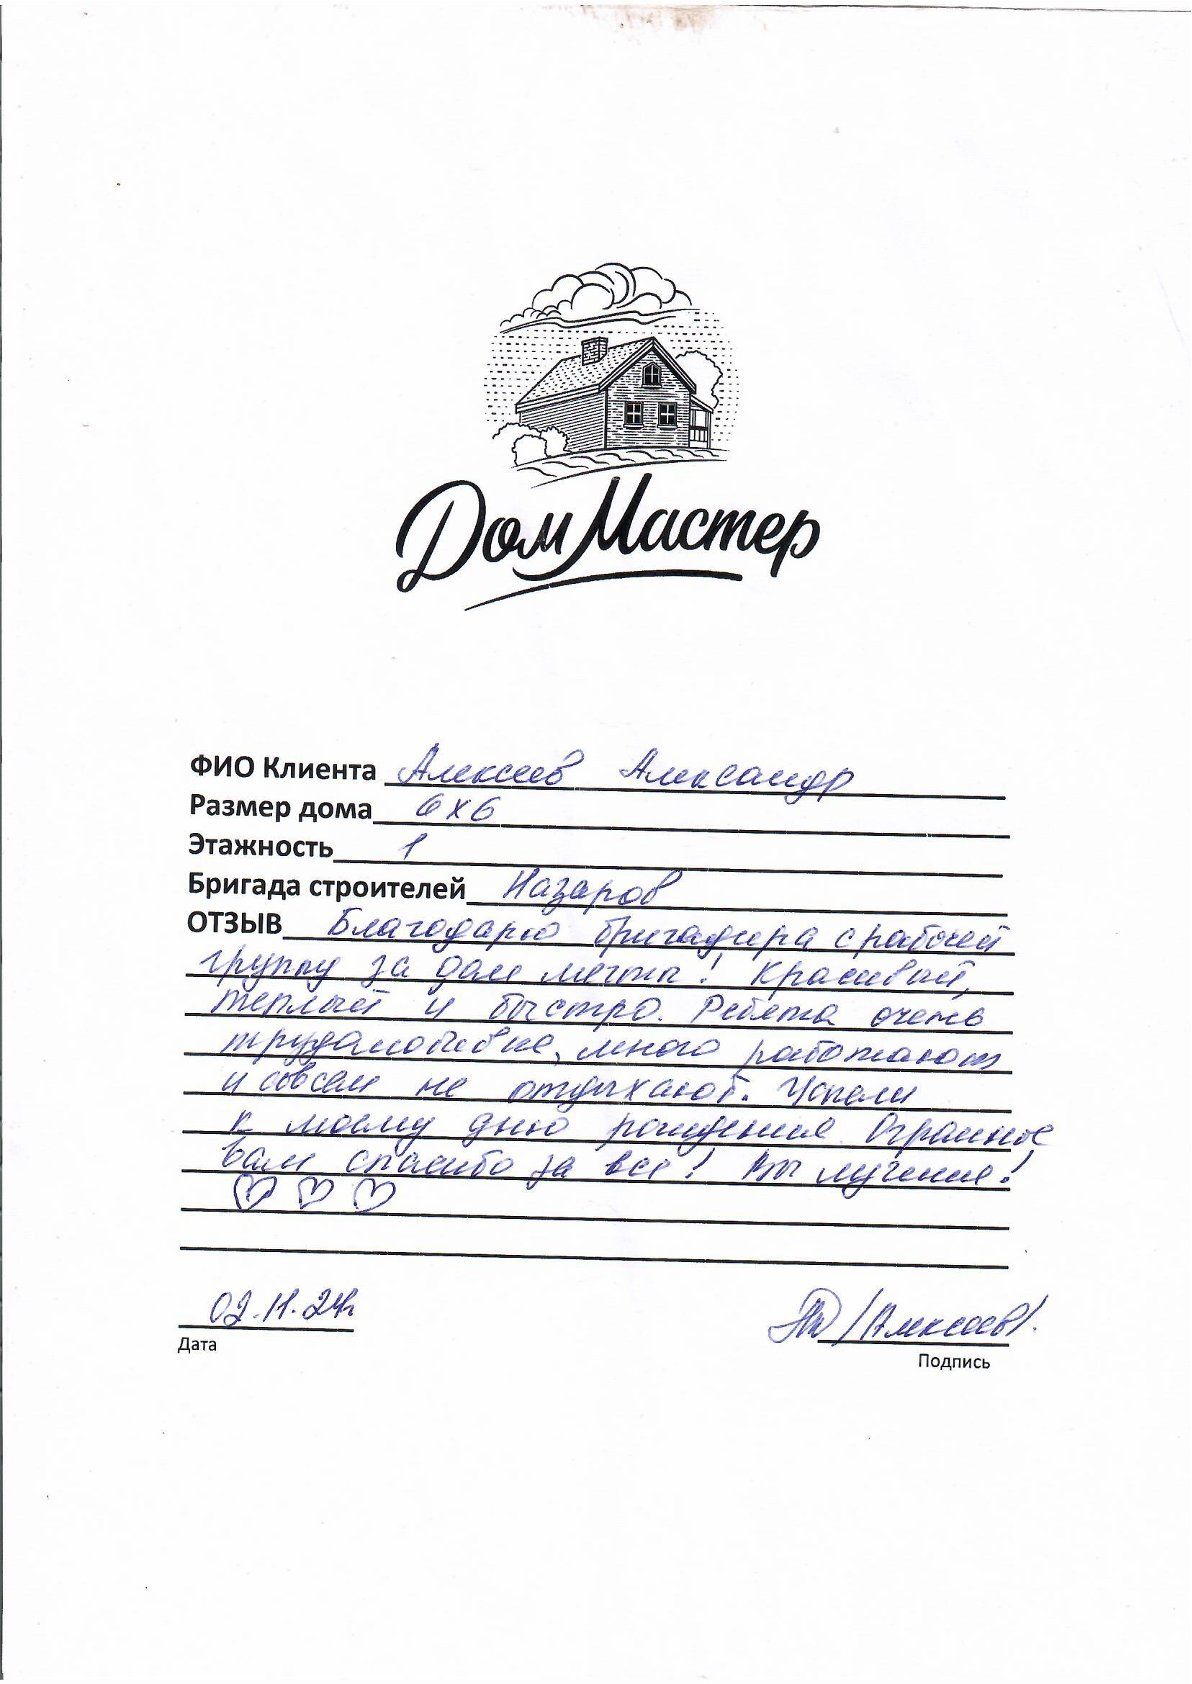 Дом Мастер
ФИО Клиента Алексеев Александр
Размер дома 6х6
Этажность 1
Бригада строителей Назаров
ОТЗЫВ Благодарю бригадира с рабочей
группу за дом мечты! Красивый,
теплый и быстро. Ребята очень
трудолюбивые, много работают
и совсем не отдыхают. Успели
к моему дню рождения. Огромное
вам спасибо за все! Вы лучшие!
02.11.24г.
/Алексеев/.
Дата
Подпись